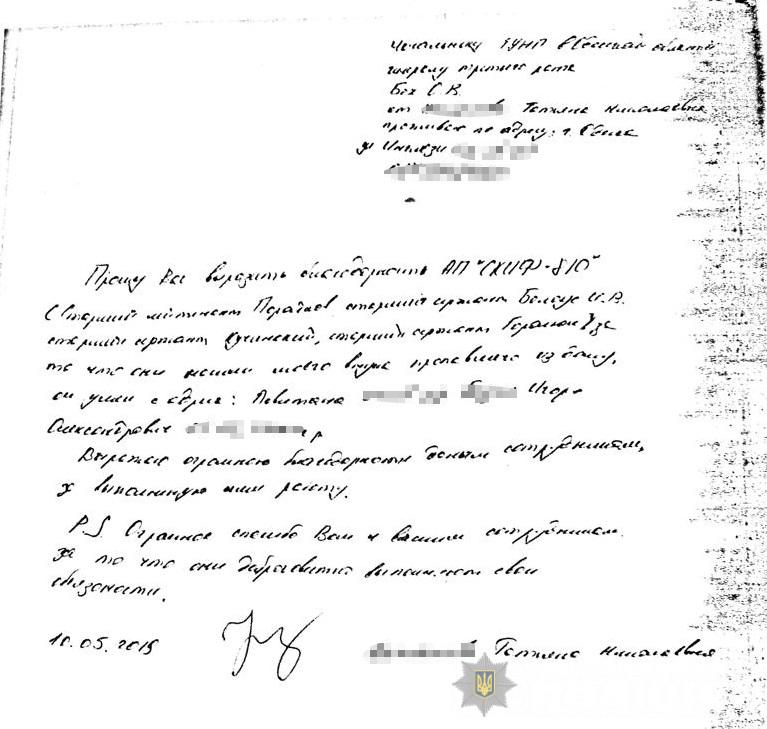 Начальнику ГУНП в Одесской области
генералу третьего ранга
Бех С. В.
от Татьяна Николаевна
проживаю по адресу: г. Одесса
ул
Прошу Вас выразить благодарность АП "СКИФ-810"
(Старший лейтенант старший сержант Белоус И. В.
старший сержант старший сержант за
то что они нашли моего внука пропавшего из дому,
он ушел с адреса: Левитана Игорь
Александрович г.р
Выражаю огромную благодарность Вашим сотрудникам,
за выполненную ими работу.
P.S. Огромное спасибо Вам и вашим сотрудникам
за то что они добросовестно выполняют свои
обязаности.
10.05.2019
Татьяна Николаевна